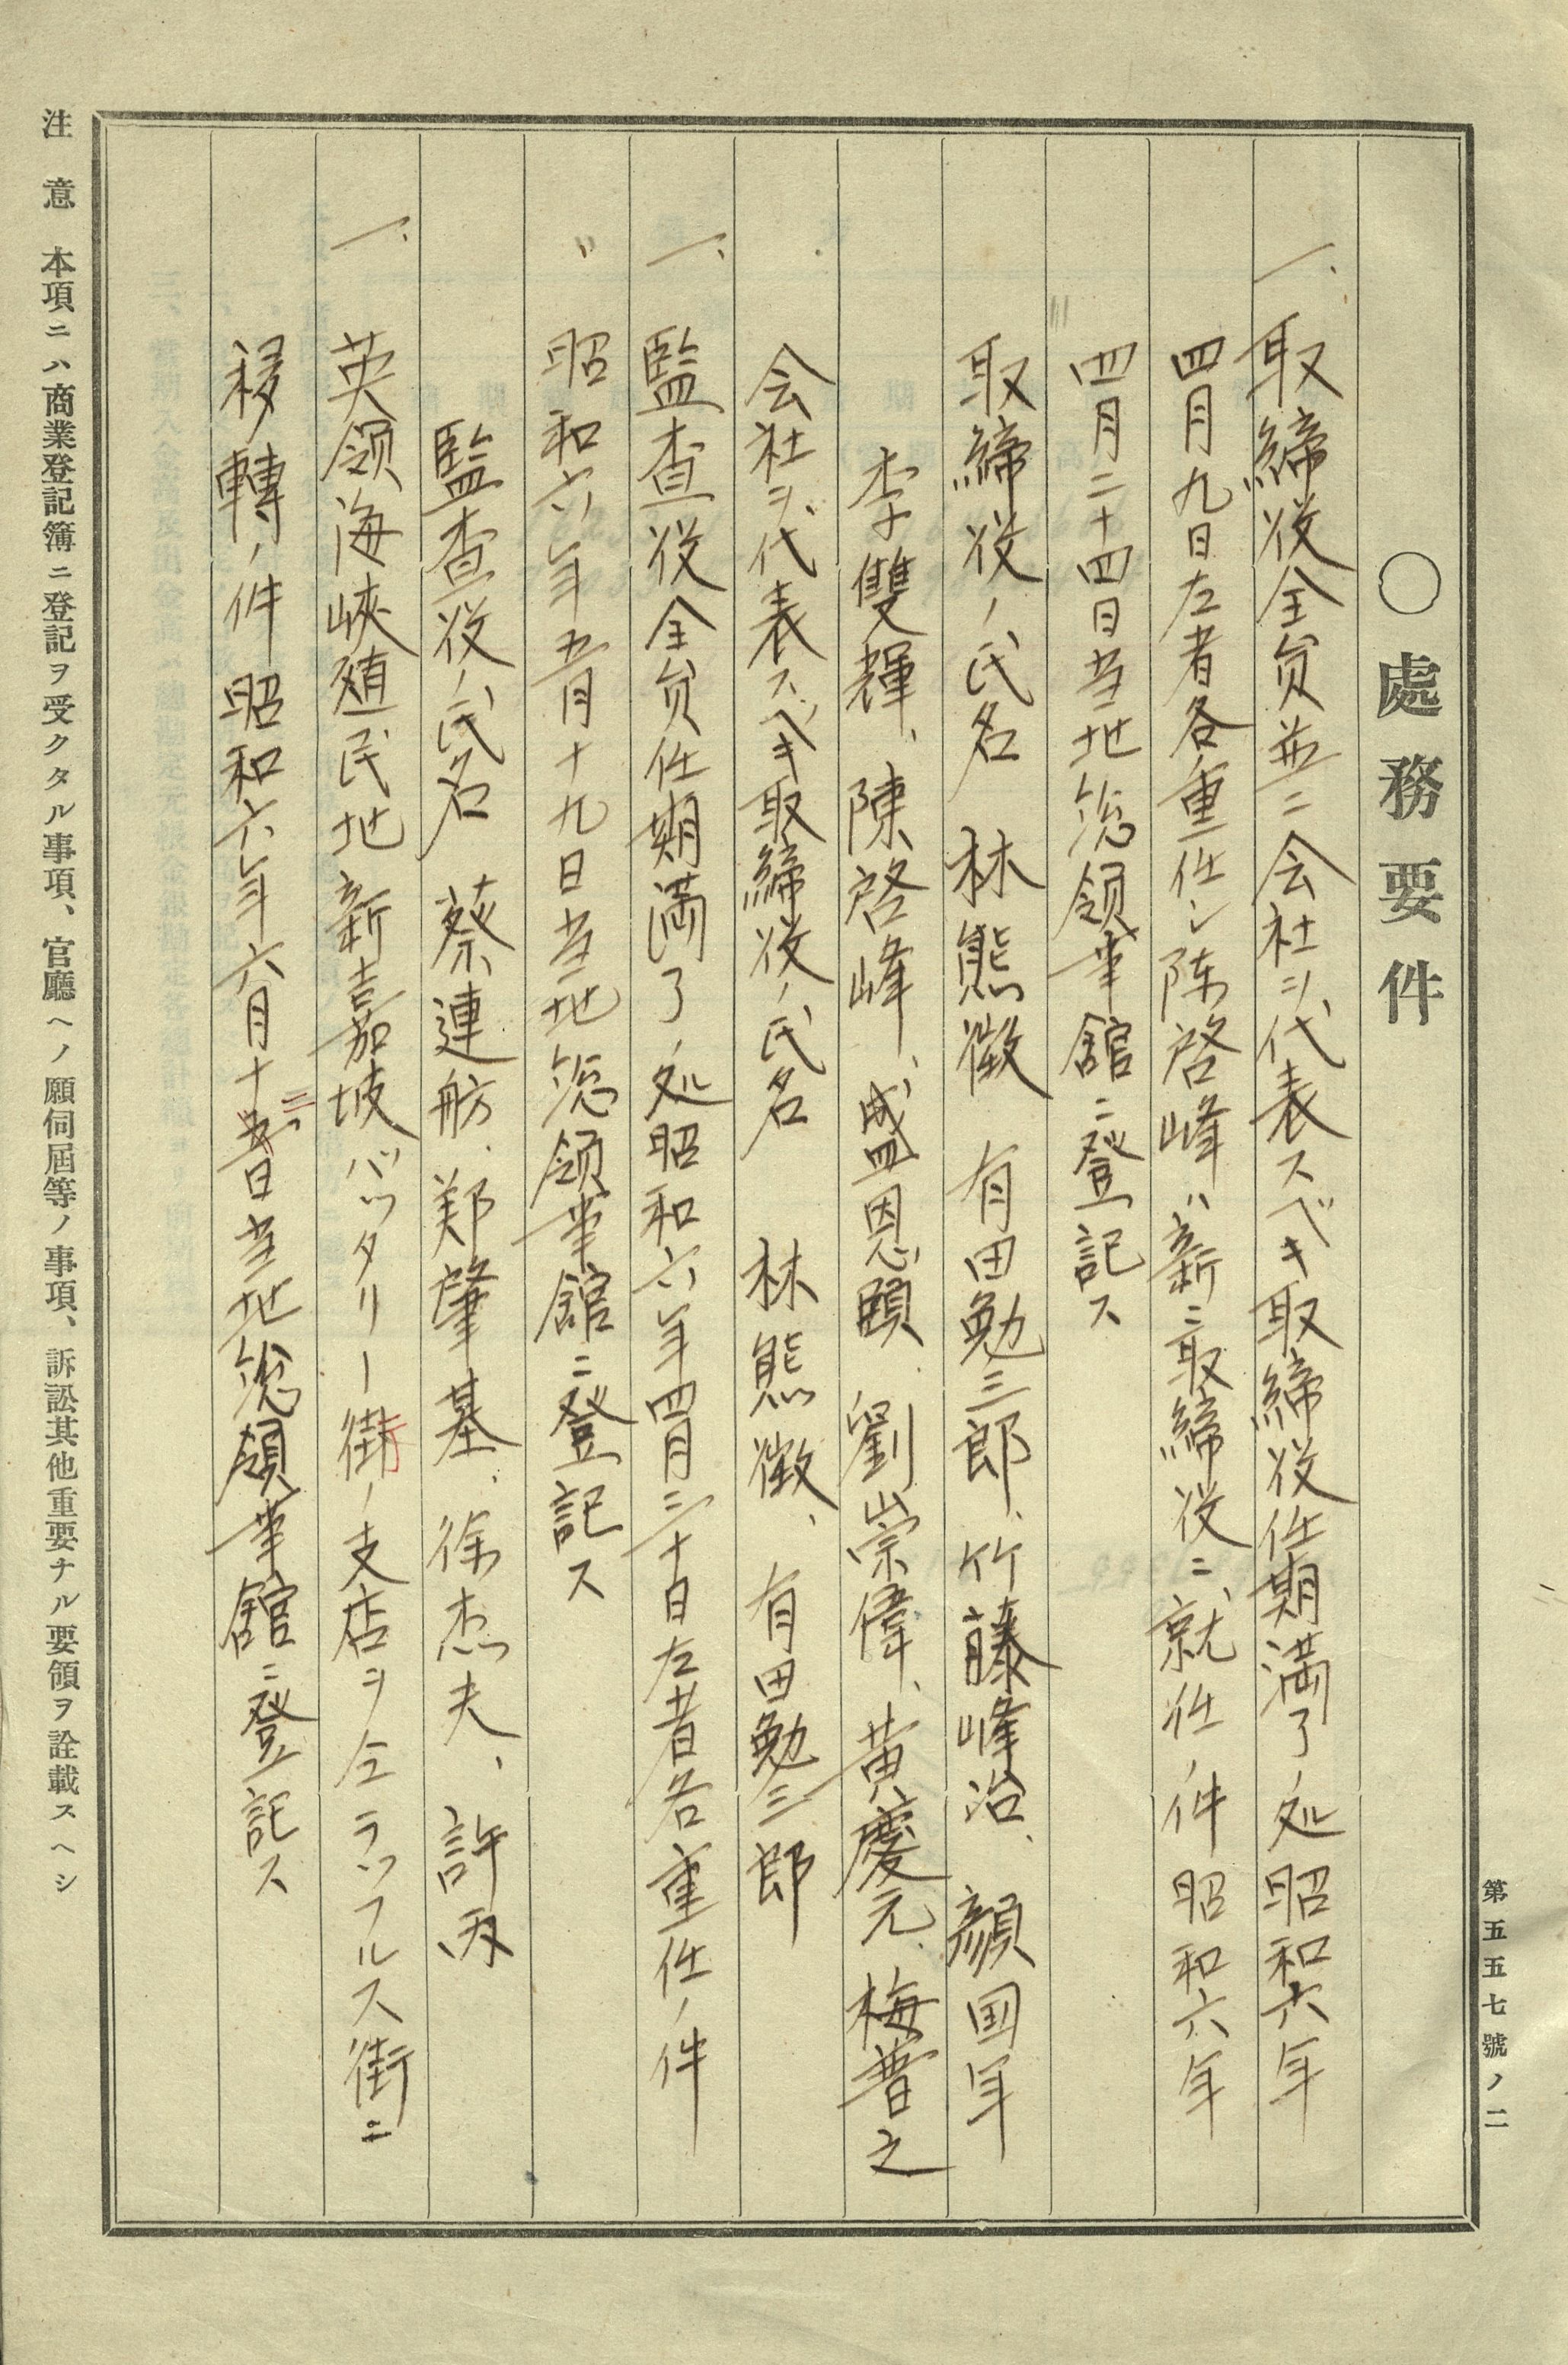 第五五七號ノ二
○處務要件
一、取締役全員並ニ会社ヲ代表スベキ取締役任期満了ノ処昭和六年
四月九日左者各重任シ陳啓峰ハ新ニ取締役ニ就任ノ件昭和六年
四月二十四日当地総領事館ニ登記ス
取締役ノ氏名 林熊徴 有田勉三郎、竹藤峰治、顔国年
李雙輝、陳啓峰、盛恩頤、劉崇偉、黄慶元、梅普之
会社ヲ代表スベキ取締役ノ氏名 林熊徴、有田勉三郎
一、監査役全員任期満了ノ処昭和六年四月三十日左者各重任ノ件
昭和六年五月十九日当地総領事館ニ登記ス
監査役ノ氏名 蔡連舫、鄭肇基、徐杰夫、許丙
一、英領海峡殖民地新嘉坡バッタリー街ノ支店ヲ仝ラッフルス街ニ
移轉ノ件昭和六年六月十二日当地総領事館ニ登記ス
注意 本項ニハ商業登記簿ニ登記ヲ受クタル事項、官廳ヘノ願伺屆等ノ事項、訴訟其他重要ナル要領ヲ詮載スヘシ